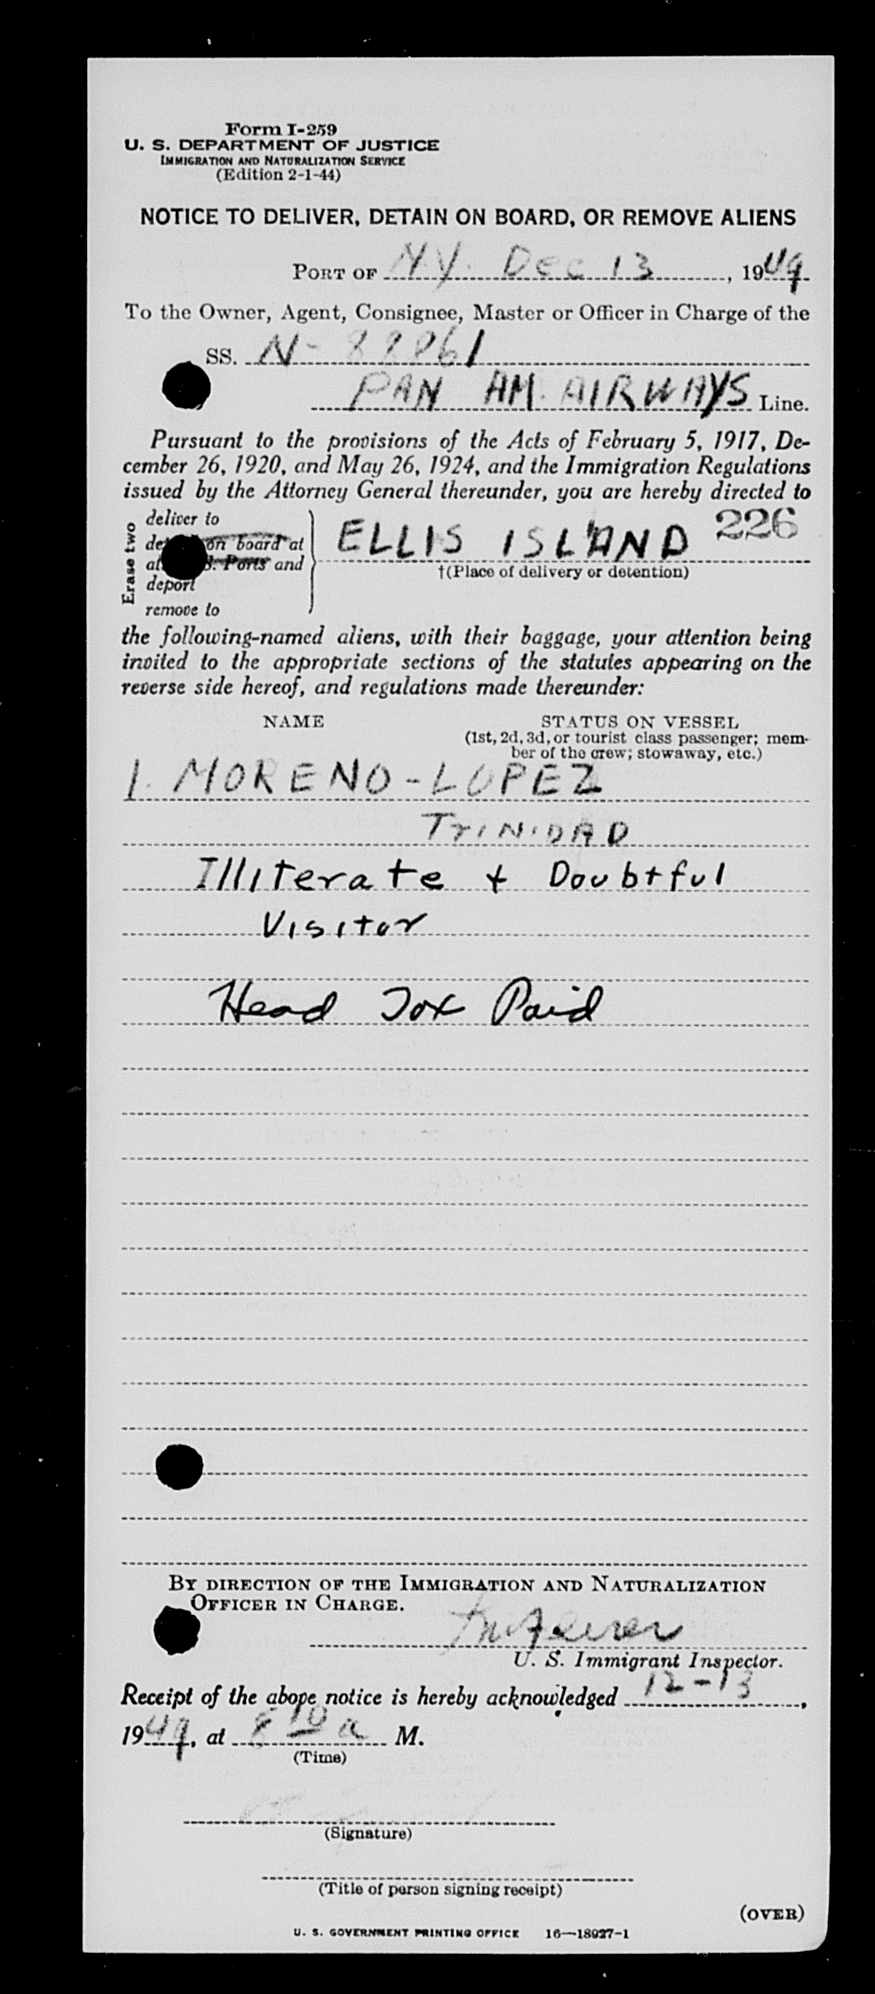 Form I-259
U. S. DEPARTMENT OF JUSTICE
IMMIGRATION AND NATURALIZATION SERVICE
(Edition 2-1-44)
NOTICE TO DELIVER, DETAIN ON BOARD, OR REMOVE ALIENS
PORT OF N.Y. Dec 13, 1949
To the Owner, Agent, Consignee, Master or Officer in Charge of the
SS. N-
PAN AM. AIRWAYS Line.
Pursuant to the provisions of the Acts of February 5, 1917, De-
cember 26, 1920, and May 26, 1924, and the Immigration Regulations
issued by the Attorney General thereunder, you are hereby directed to
Erase two
deliver to
on board at
Ports and
deport
remove to
ELLIS ISLAND 226
†(Place of delivery or detention)
the following-named aliens, with their baggage, your attention being
invited to the appropriate sections of the statutes appearing on the
reverse side hereof, and regulations made thereunder:
NAME STATUS ON VESSEL
(1st, 2d, 3d, or tourist class passenger; mem-
ber of the crew; stowaway, etc.)
1. MORENO-LOPEZ
TRINIDAD
Illiterate + Doubtful
Visitor
Head Tax Paid
BY DIRECTION OF THE IMMIGRATION AND NATURALIZATION
OFFICER IN CHARGE.
U. S. Immigrant Inspector.
Receipt of the above notice is hereby acknowledged 12-13,
1949, at 8 10 a M.
(Time)
(Signature)
(Title of person signing receipt)
(OVER)
U. S. GOVERNMENT PRINTING OFFICE 16—18027-1